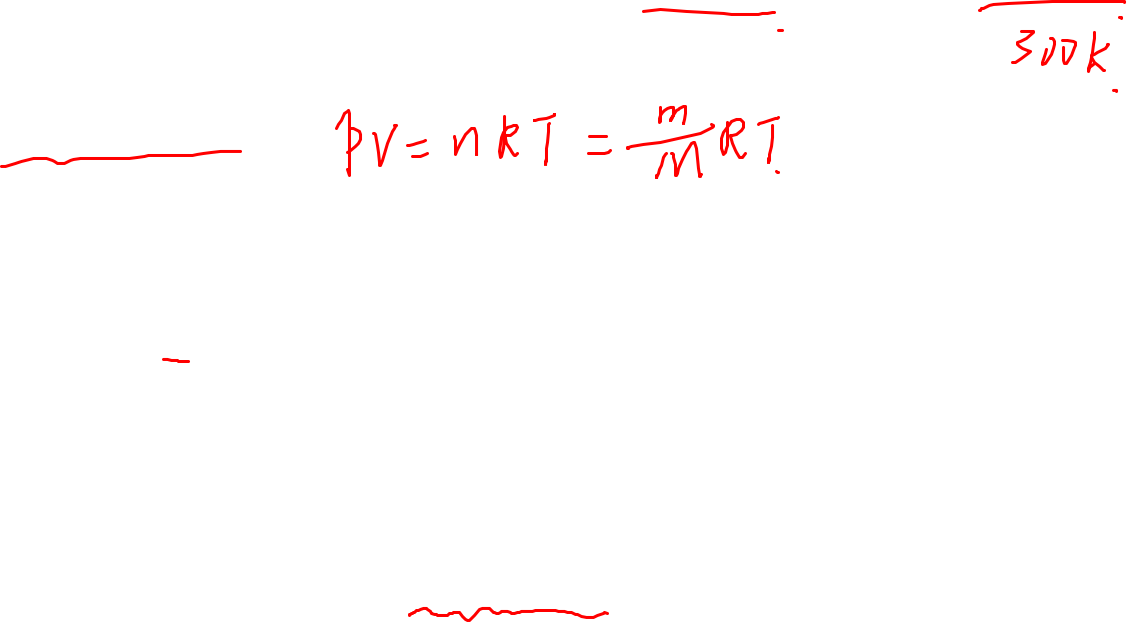 300k
PV = nRT = m/M RT